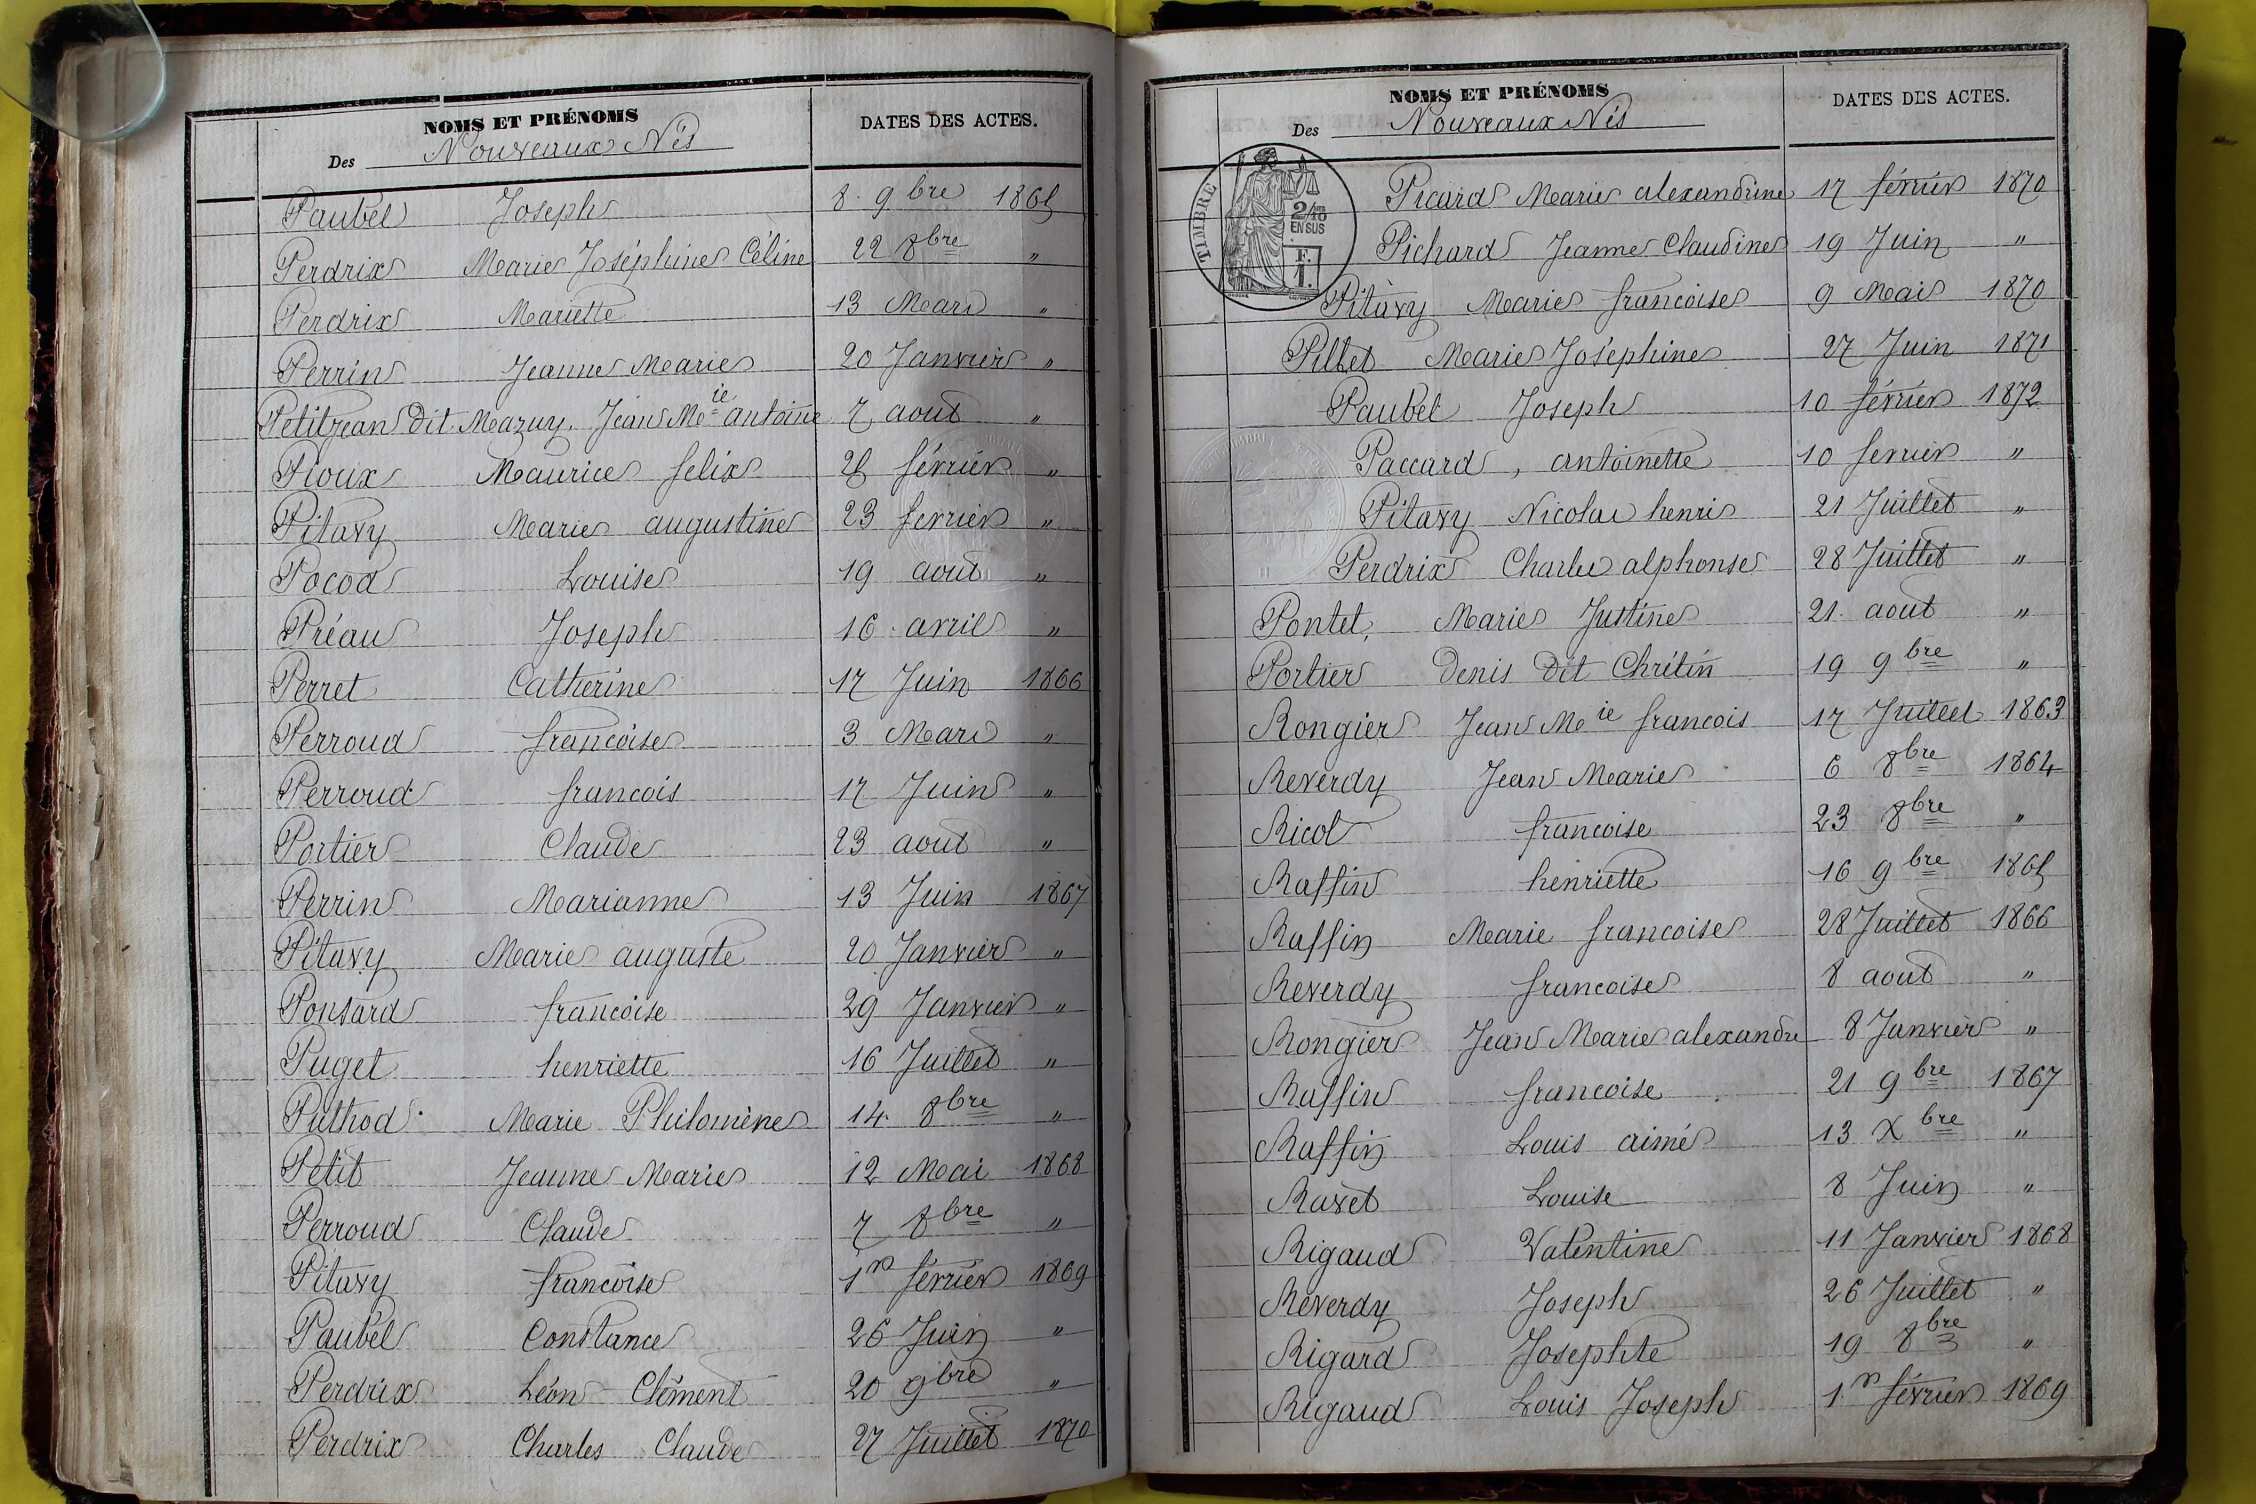 NOMS ET PRÉNOMS
DATES DES ACTES.
Des Nouveaux Nés
Paubel Joseph 8. 9bre 1865
Perdrix Marie Joséphine Céline 22 8bre "
Perdrix Mariette 13 Mars "
Perrin Jeanne Marie 20 Janvier "
Petitjean dit Mazuy. Jean Mie antoine 7 aout "
Pioux Maurice felix 25 février "
Pitavy Marie augustine 23 fevrier "
Pocod Louise 19 aout "
Préau Joseph 16 avril "
Perret Catherine 17 Juin 1866
Perroud francoise 3 Mars "
Perroud francois 17 Juin "
Portier Claude 23 aout "
Perrin Marianne 13 Juin 1867
Pitavy Marie auguste 20 Janvier "
Ponsard francoise 29 Janvier "
Puget henriette 16 Juillet "
Puthod Marie Philomène 14. 8bre "
Petit Jeanne Marie 12 Mai 1868
Perroud Claude 7 8bre "
Pitavy francoise 1er février 1869
Paubel Constance 26 Juin "
Perdrix Léon Clément 20 9bre "
Perdrix Charles Claude 27 Juillet 1870
NOMS ET PRÉNOMS
DATES DES ACTES.
Des Nouveaux Nés
TIMBRE
2/10 EN SUS
F. 1.
Picard Marie alexandrine 17 février 1870
Pichard Jeanne Claudine 19 Juin "
Pitavy Marie francoise 9 Mai 1870
Pillet Marie Joséphine 27 Juin 1871
Paubel Joseph 10 février 1872
Paccard, antoinette 10 fevrier "
Pitavy Nicolas henri 21 Juillet "
Perdrix Charles alphonse 28 Juillet "
Pontet, Marie Justine 21. aout "
Portier denis dit Chrétin 19 9bre "
Rongier Jean Mie francois 17 Juillet 1863
Reverdy Jean Marie 6 8bre 1864
Ricol francoise 23 8bre "
Raffin henriette 16 9bre 1865
Raffin Marie francoise 28 Juillet 1866
Reverdy francoise 8 aout "
Rongier Jean Marie alexandre 8 Janvier "
Raffin francoise 21 9bre 1867
Raffin Louis aimé 13 Xbre "
Ravet Louise 8 Juin "
Rigaud Valentine 11 Janvier 1868
Reverdy Joseph 26 Juillet "
Rigard Josephte 19 8bre "
Rigaud Louis Joseph 1er février 1869